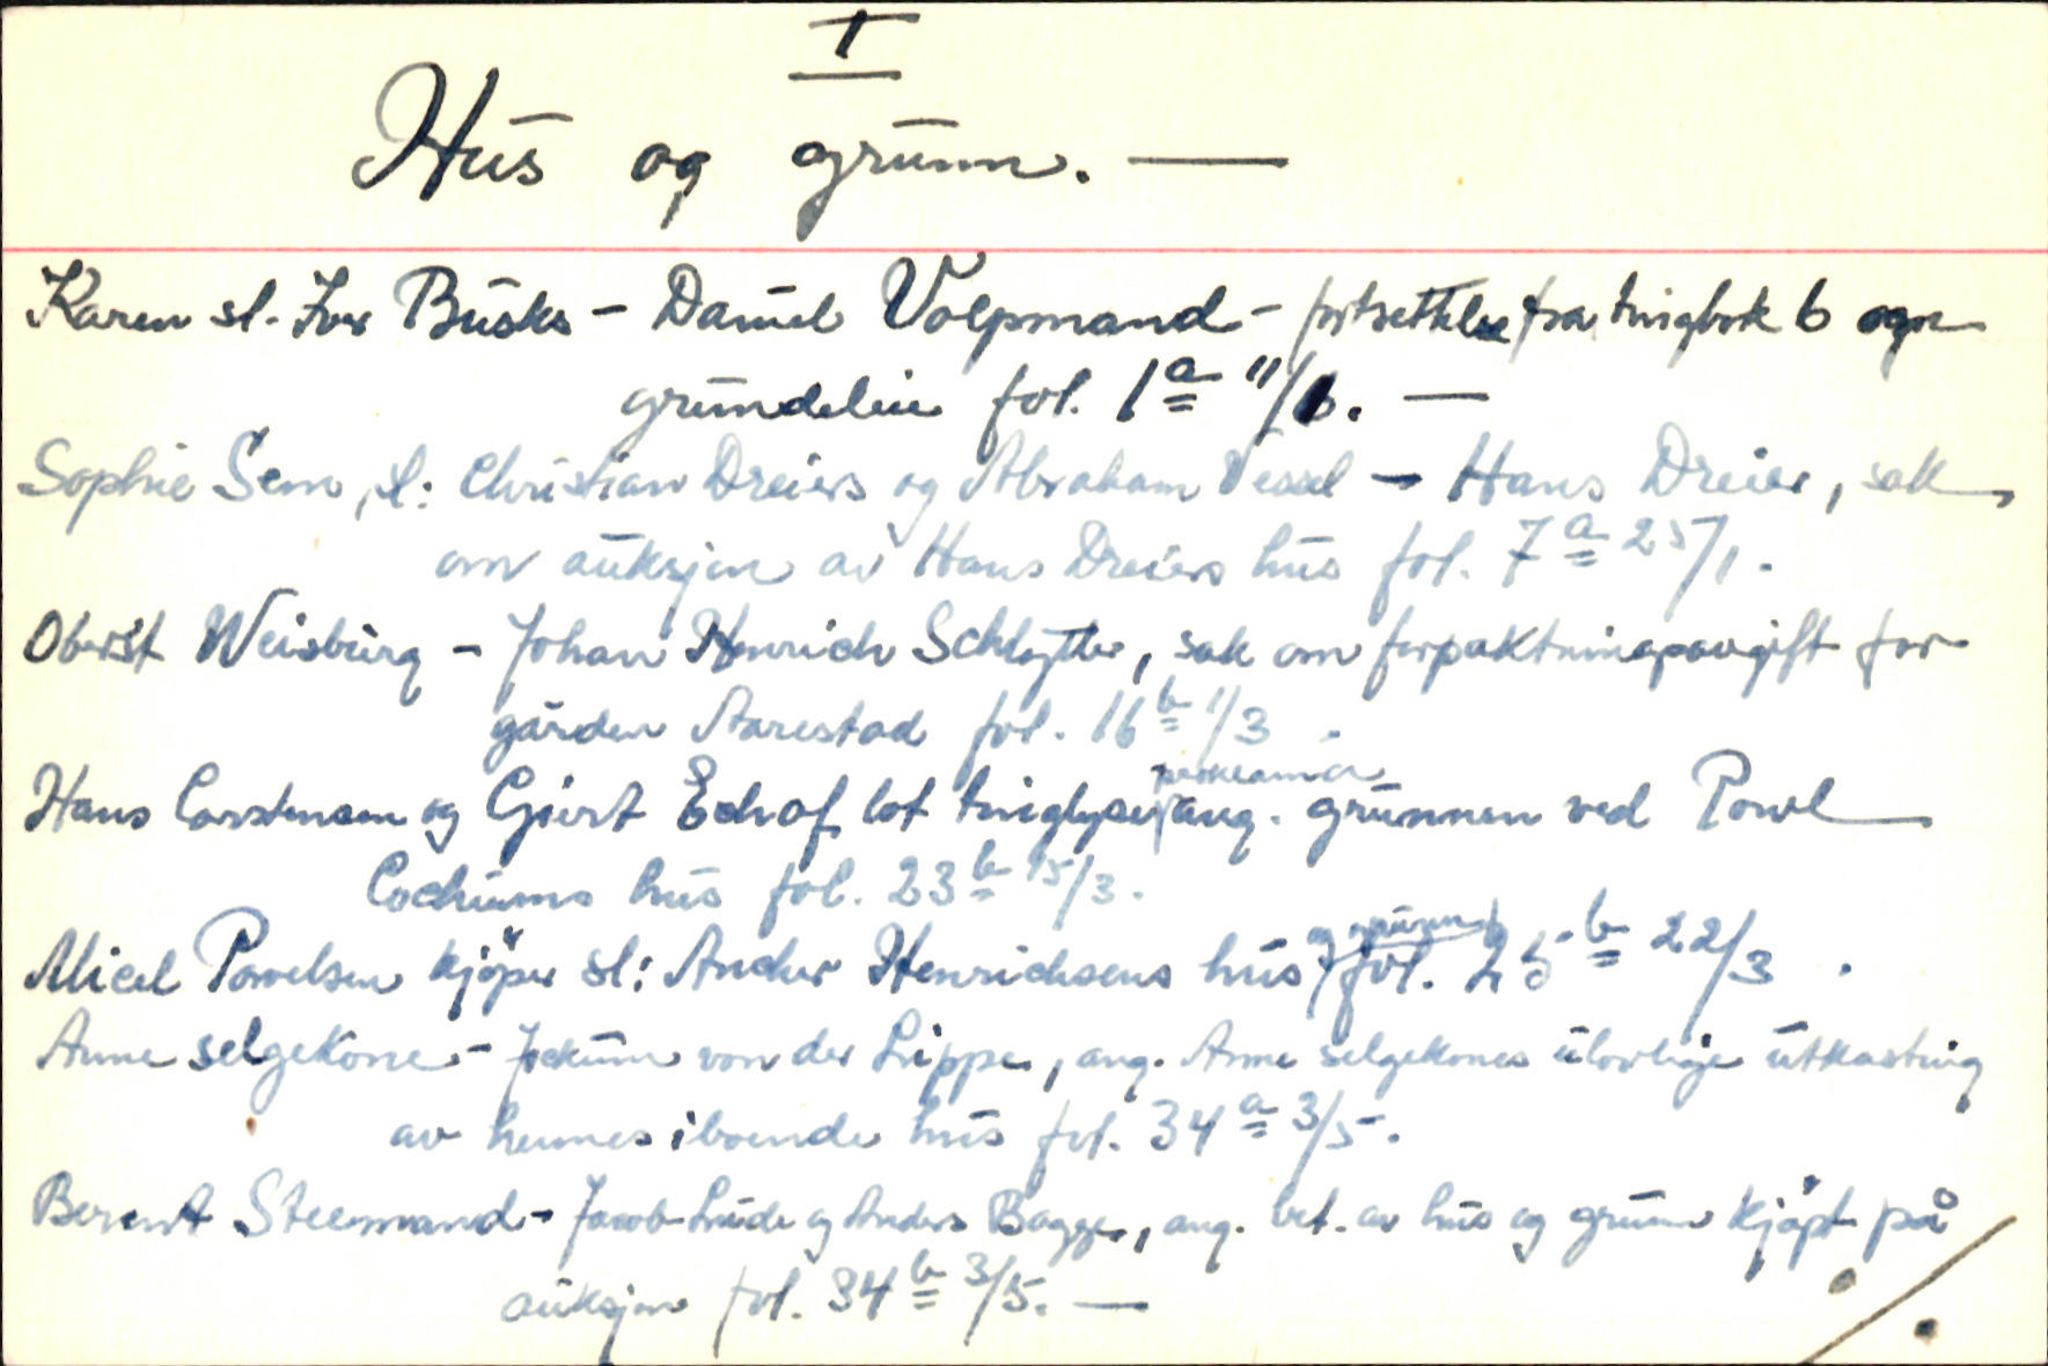 I
Hus og grunn. —
Karen sl. Iver Busks - Daniel Volpmand - fortsettelse fra tingbok 6
grundeleie fol. 1a 11/1. —
Sophie Sem, sl: Christian Dreiers og Abraham Vessel - Hans Dreier, sak
om auksjon av Hans Dreiers hus fol. 7a 25/1.
Oberst Weisburg - Johan Henrich Schløtter, sak om forpaktningsavgift for
gården Aarestad fol. 16b 1/3.
Hans Carstensen og Giert Echof lot tinglyse proklama ang. grunnen ved Powl
Cochums hus fol. 23b 15/3.
Micel Powelsen kjøper sl: Anders Henrichsens hus og grunn fol. 25b 22/3.
Anne selgekone - Jockum von der Lippe, ang. Anne selgekones ulovlige utkasting
av hennes iboende hus fol. 34a 3/5.
Berent Steemand - Jacob Lude og Anders Bagge, ang. bet. av hus og grunn kjøpt på
auksjon fol. 34b 3/5. —